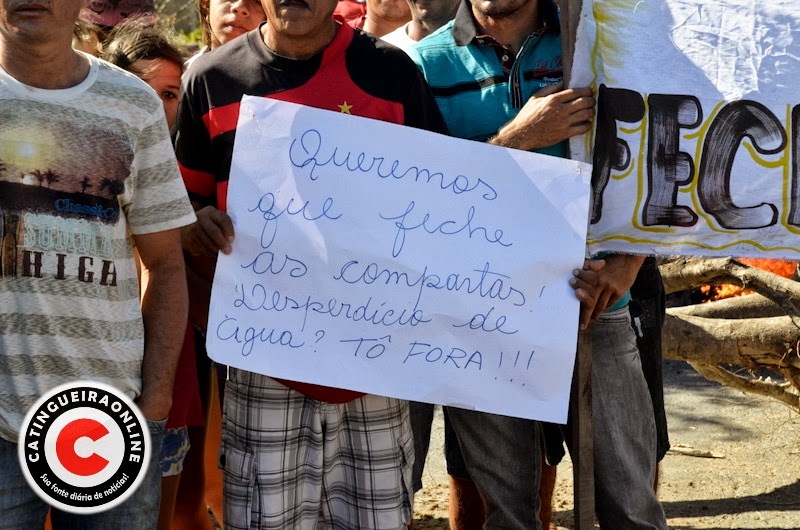 Queremos
que feche
as compartas!
Desperdício de
água? TÔ FORA!!!
FEC
HIGA
CATINGUEIRAONLINE
C
Sua fonte diária de notícias!